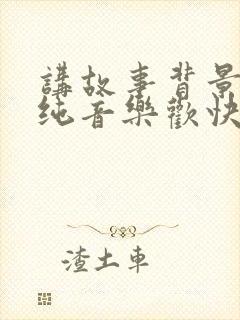 講故事背景
纯音樂歡快
渣土車